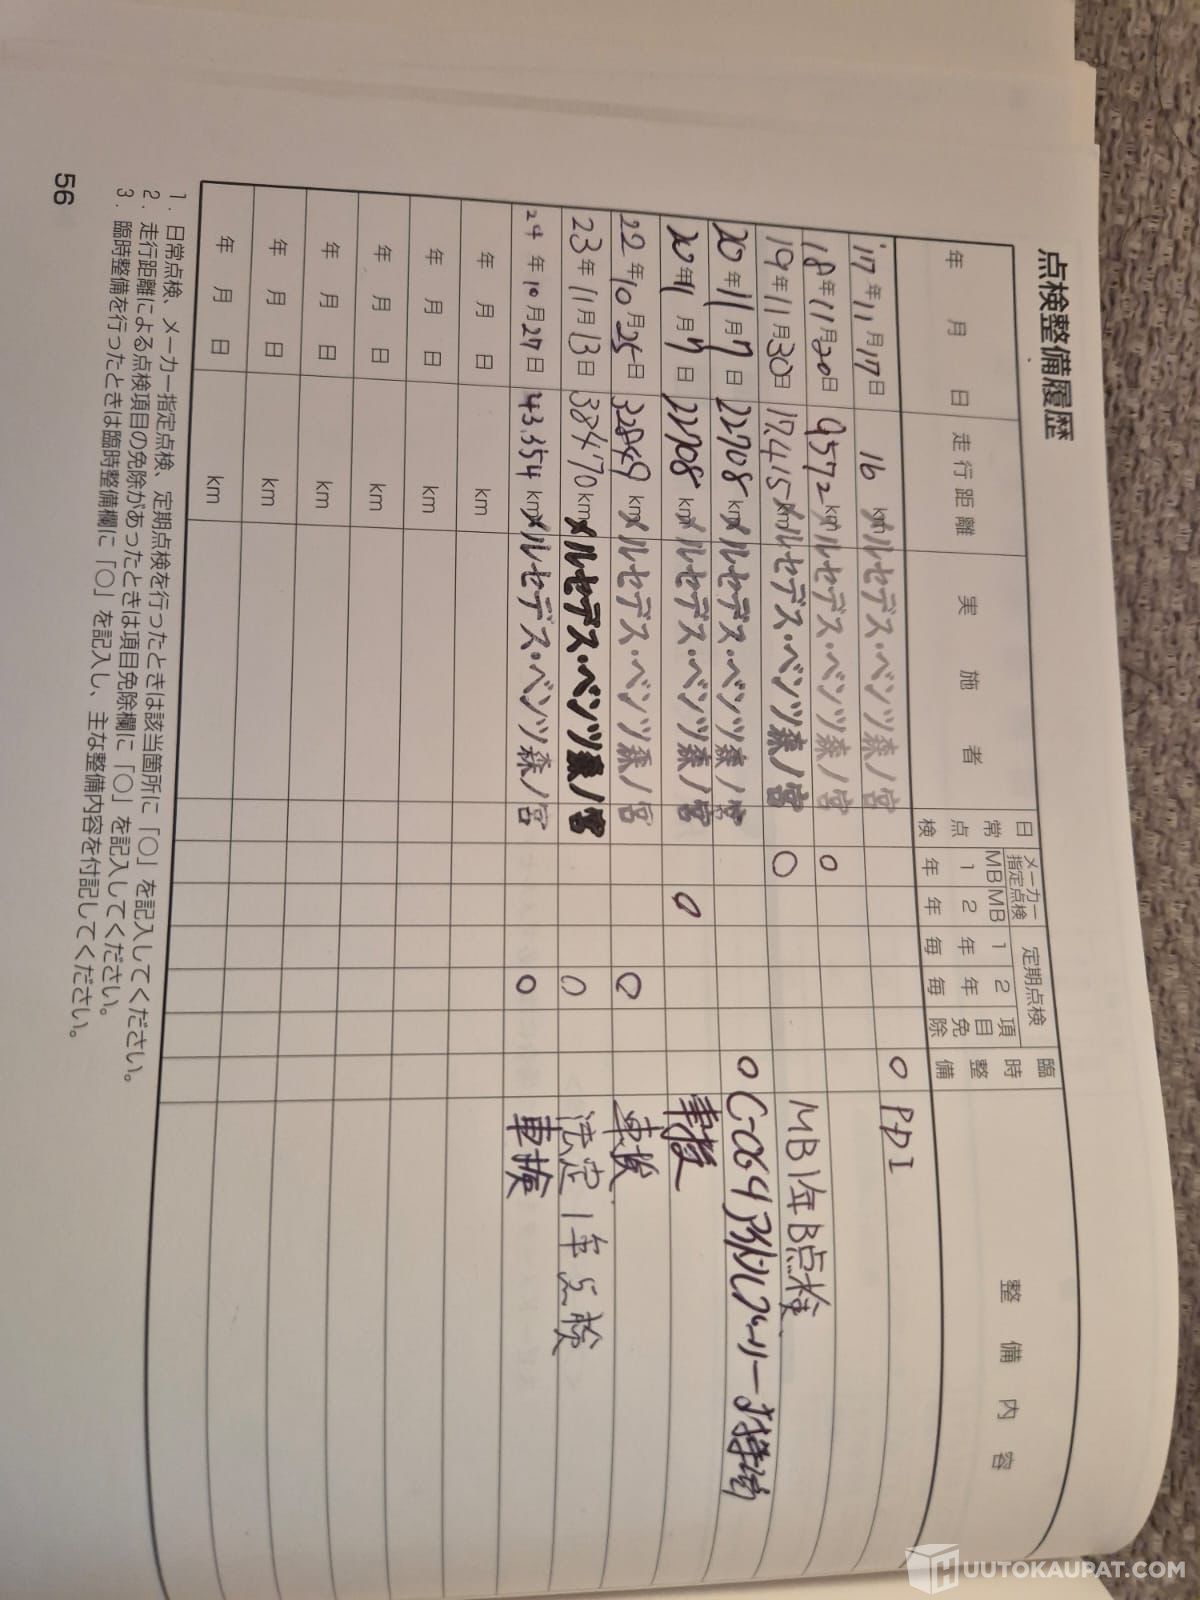 点検整備履歴
年 月 日 走行距離 実施者 日常点検 メーカー指定点検 MB1年 MB2年 定期点検 1年毎 2年毎 項目免除 臨時整備 整備内容
'17年11月17日 16km メルセデス・ベンツ森ノ宮 ○ PDI
'18年11月20日 9572km メルセデス・ベンツ森ノ宮 ○
19年11月30日 17,415km メルセデス・ベンツ森ノ宮 ○ MB1年B点検
20年11月7日 22708km メルセデス・ベンツ森ノ宮 ○
20年11月7日 22708km メルセデス・ベンツ森ノ宮 ○ 車検
22年10月25日 32849km メルセデス・ベンツ森ノ宮 ○ 車検
23年11月13日 38470km メルセデス・ベンツ森ノ宮 ○ 法定1年点検
24年10月27日 43,354km メルセデス・ベンツ森ノ宮 ○ 車検
年 月 日 km
年 月 日 km
年 月 日 km
年 月 日 km
年 月 日 km
年 月 日 km
1. 日常点検、メーカー指定点検、定期点検を行ったときは該当箇所に「○」を記入してください。
2. 走行距離による点検項目の免除があったときは項目免除欄に「○」を記入してください。
3. 臨時整備を行ったときは臨時整備欄に「○」を記入し、主な整備内容を付記してください。
56
UUTOKAUPAT.COM